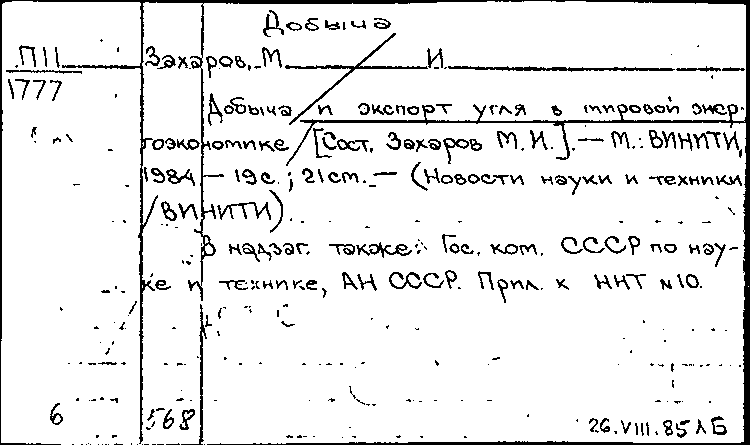 Добыча
П11 Захаров, М. И
1777
Добыча и экспорт угля в мировой энер-
гоэкономике / [Сост. Захаров М. И.]. — М.: ВИНИТИ,
1984 — 19с.; 21cm. — (Новости науки и техники
/ ВИНИТИ).
В надзаг. также: Гос. ком. СССР по нау-
ке и технике, АН СССР. Прил. к ННТ №10.
6 568 26.VIII.85 ЛБ